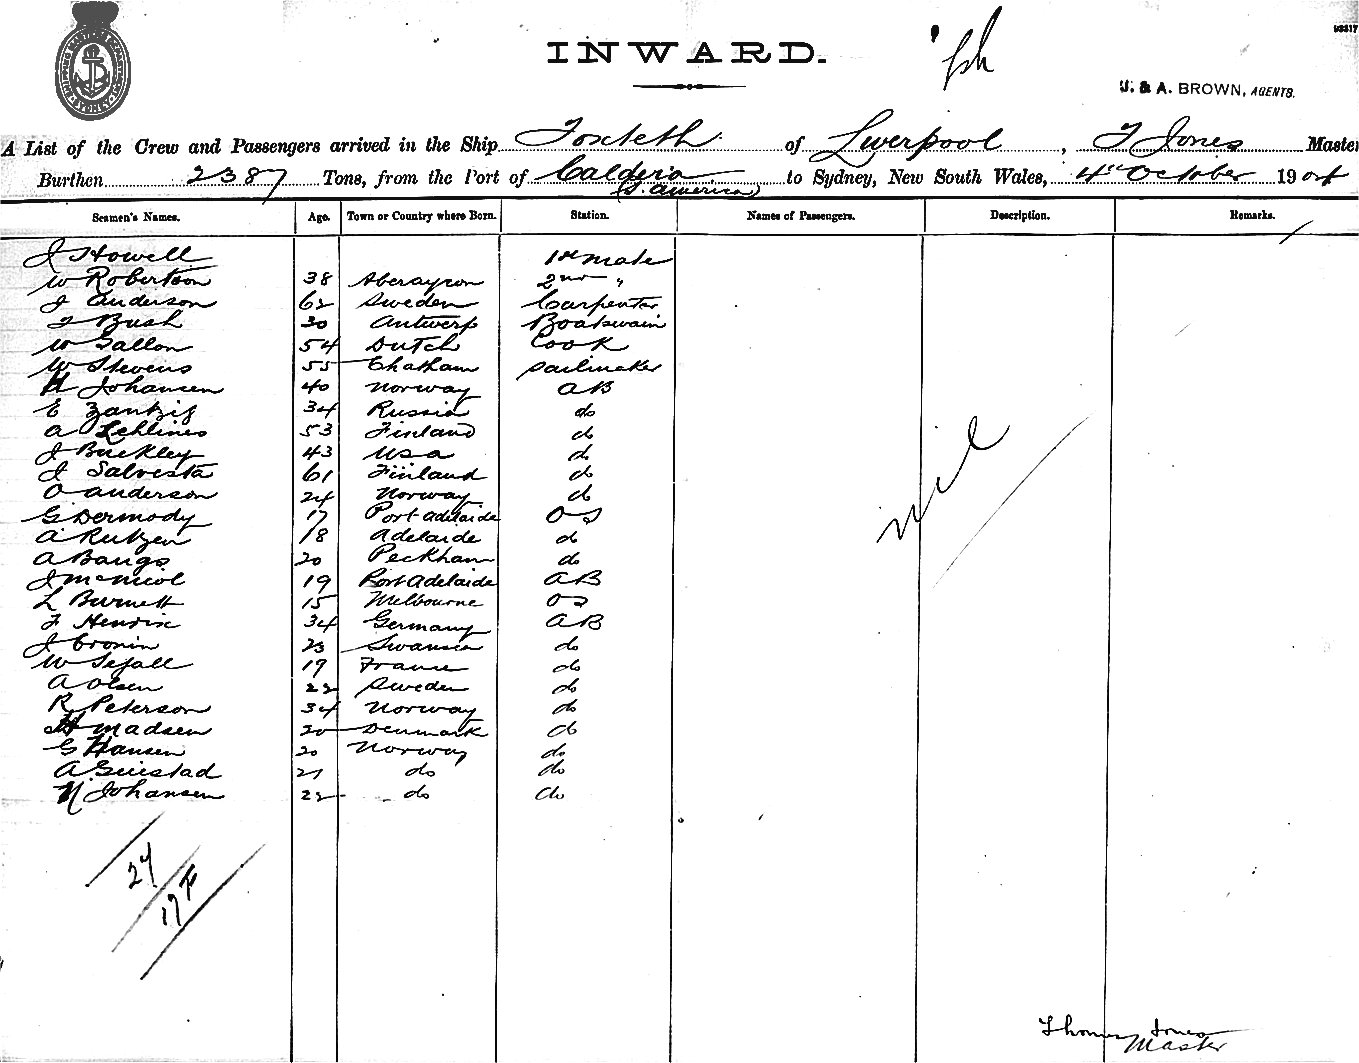 INWARD.
J. & A. BROWN, AGENTS.
A List of the Crew and Passengers arrived in the Ship Toxteth of Liverpool, T Jones Master
Burthen 2387 Tons, from the Port of Caldera to Sydney, New South Wales, 4th October 190
(S. America)
Seamen's Names. Age. Town or Country where Born. Station. Names of Passengers. Description. Remarks.
J Howell 1st mate
W Robertson 38 Aberayron 2nd "
J Anderson 62 Sweden Carpenter
J Bush 30 Antwerp Boatswain
W Gallon 54 Dutch Cook
W Stevens 55 Chatham Sailmaker
H Johansen 40 Norway AB
E 34 Russia do
A 53 Finland do
J Buckley 43 USA do
J Salvesta 61 Finland do
O Anderson 24 Norway do
G Dermody 17 Port Adelaide OS
A Rutzen 18 Adelaide do
A Bangs 20 Peckham do
J McNicol 19 Port Adelaide AB
L Burnett 15 Melbourne OS
F Henrix 34 Germany AB
J Cronin 23 Swansea do
W 19 France do
A Olsen 22 Sweden do
R Peterson 34 Norway do
H Madsen 20 Denmark do
G Hansen 20 Norway do
A 21 do do
N Johansen 22 do do
nil
24
17 F
Thomas Jones
Master